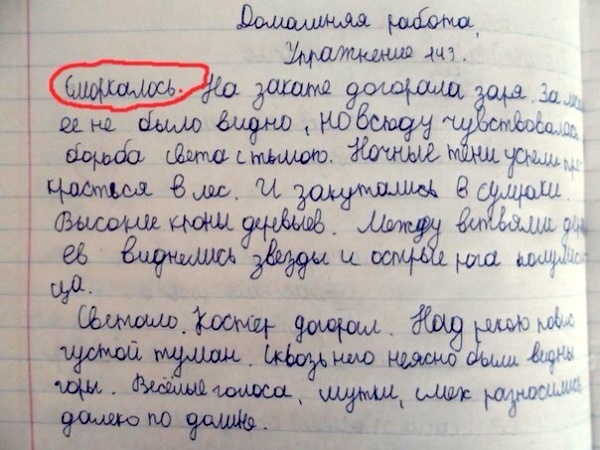 Домашняя работа,
Упражнение 143.
Сморкалось. На закате догорала заря. За
ее не было видно, но всюду чувствовалась
борьба света с тьмою. Ночные тени успели про-
красться в лес. И закутались в сумраки.
Высокие кроны деревьев. Между ветвями дере
ев виднелись звезды и острые рога полумеся
ца.
Светало. Костер догорал. Над рекою повис
густой туман. Сквозь него неясно были видны
горы. Весёлые голоса, шутки, смех разносились
далеко по долине.